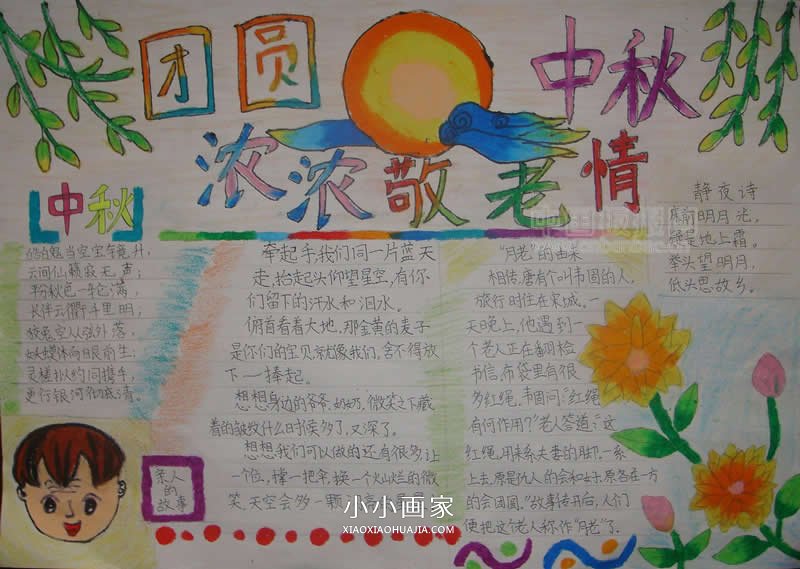 团圆
中秋
浓浓敬老情
中秋
皓魄当空宝镜升，
云间仙籁寂无声；
平分秋色一轮满，
长伴云衢千里明；
狡兔空从弦外落，
妖蟆休向眼前生；
灵槎拟约同携手，
更行银河彻底清。
亲人
的
故事
牵起手，我们同一片蓝天
走，抬起头仰望星空，有你
们留下的汗水和泪水。
俯首看着大地，那金黄的麦子
是你们的宝贝，就像我们，舍不得放
下一捧起。
想想身边的爷爷、奶奶，微笑之下藏
着的皱纹什么时候多了，又深了。
想想我们可以做的还有很多，让
一个位，撑一把伞，换一个灿烂的微
笑，天空会多一颗
"月老"的由来
相传，唐有个叫韦固的人，
旅行时住在宋城。一
天晚上，他遇到一
个老人正在翻检
书信，布袋里有很
多红绳，韦固问："红绳
有何作用？"老人答道："这
红绳，用来系夫妻的脚，一系
上去，原是仇人的会和好，原各在一方
的会团圆。"故事传开后，人们
便把这个老人称作"月老"了。
静夜诗
床前明月光，
疑是地上霜。
举头望明月，
低头思故乡。
小小画家
XIAOXIAOHUAJIA.COM